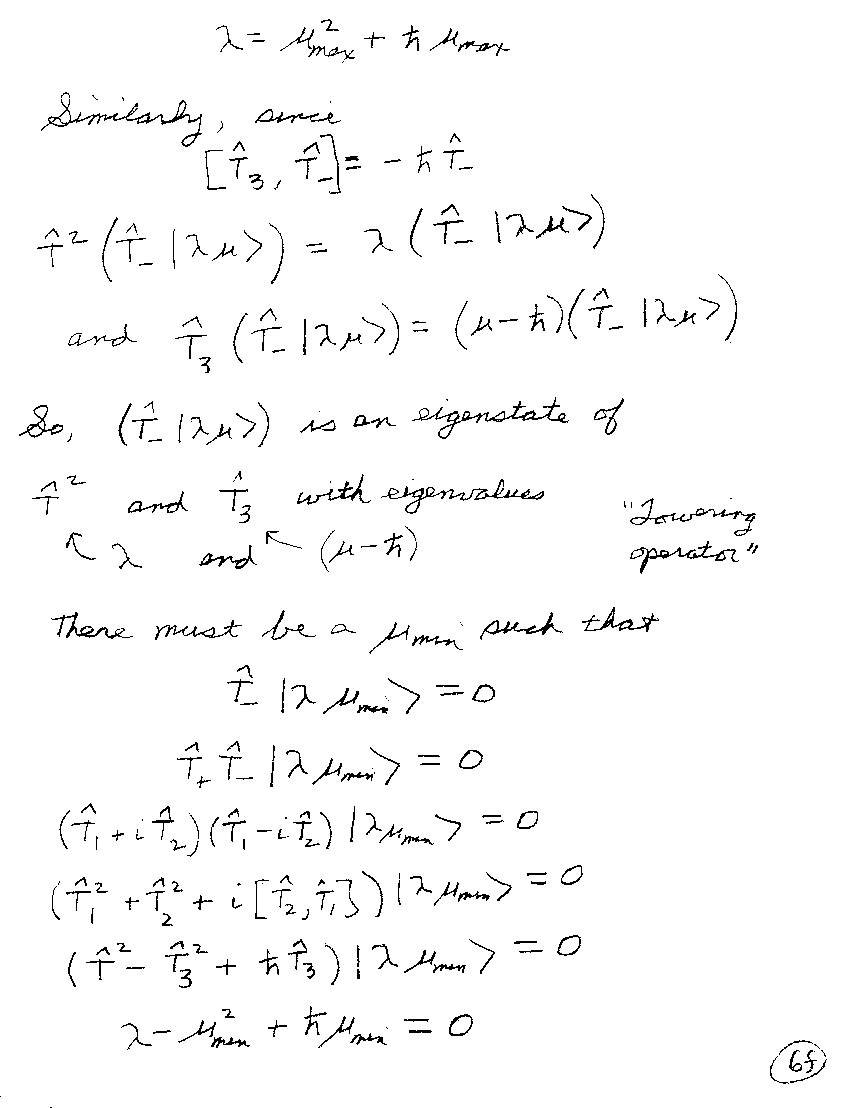 λ = μ²max + ħ μmax
Similarly, since
[T̂₃, T̂₋] = - ħ T̂₋
T̂² (T̂₋ |λμ>) = λ (T̂₋ |λμ>)
and T̂₃ (T̂₋ |λμ>) = (μ-ħ)(T̂₋ |λμ>)
So, (T̂₋ |λμ>) is an eigenstate of
T̂² and T̂₃ with eigenvalues
↖ λ and ↖ (μ-ħ)
"Lowering
operator"
There must be a μmin such that
T̂₋ |λ μmin> = 0
T̂₊ T̂₋ |λ μmin> = 0
(T̂₁ + i T̂₂)(T̂₁ - i T̂₂) |λ μmin> = 0
(T̂₁² + T̂₂² + i [T̂₂, T̂₁]) |λ μmin> = 0
(T̂² - T̂₃² + ħ T̂₃) |λ μmin> = 0
λ - μ²min + ħ μmin = 0
6f